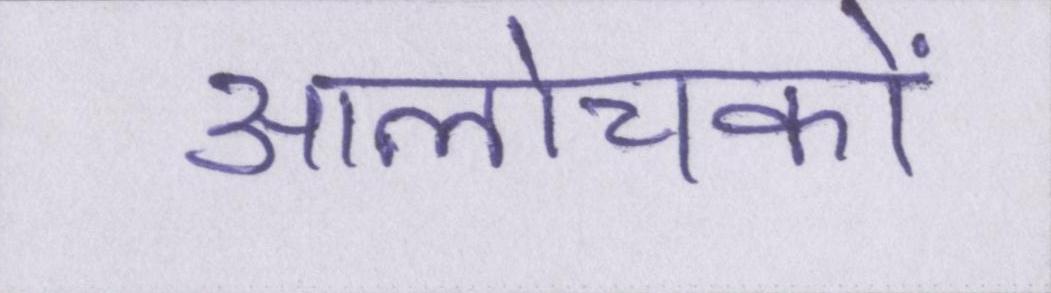 आलोचकों